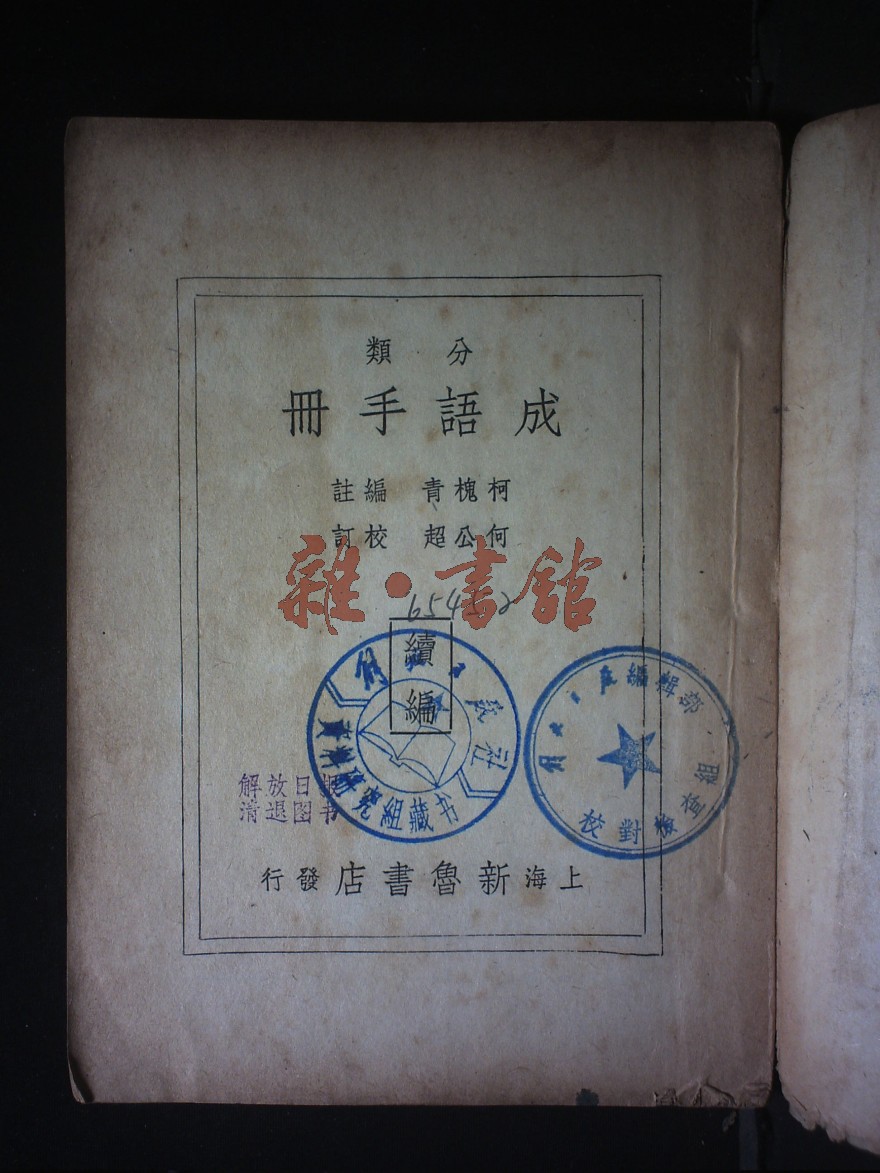 分類
成語手冊
柯槐青 編註
何公超 校訂
雜·書館
續
編
社
研究組藏书
编輯部
校對
解放日报
清退图书
上海新魯書店發行